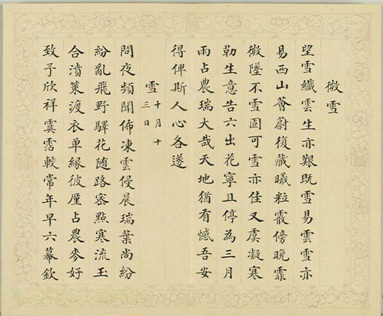 微雪
望雪纖雲生亦艱既雪易雲雪亦
易西山薈蔚復藏曦粒霰傍晩霏
微墜不雪固可雪亦佳又虞凝寒
勒生意昔六出花寧且停為三月
雨占農瑞大哉天地猶有憾吾安
得俾斯人心各遂
雪十月十三日
問夜頻開佈凍雲侵晨瑞葉尚紛
紛亂飛野驛花隨路密點寒流玉
合濆策渡衣單緣彼厪占農麥好
致子欣祥霙霑較常年早六幕欽